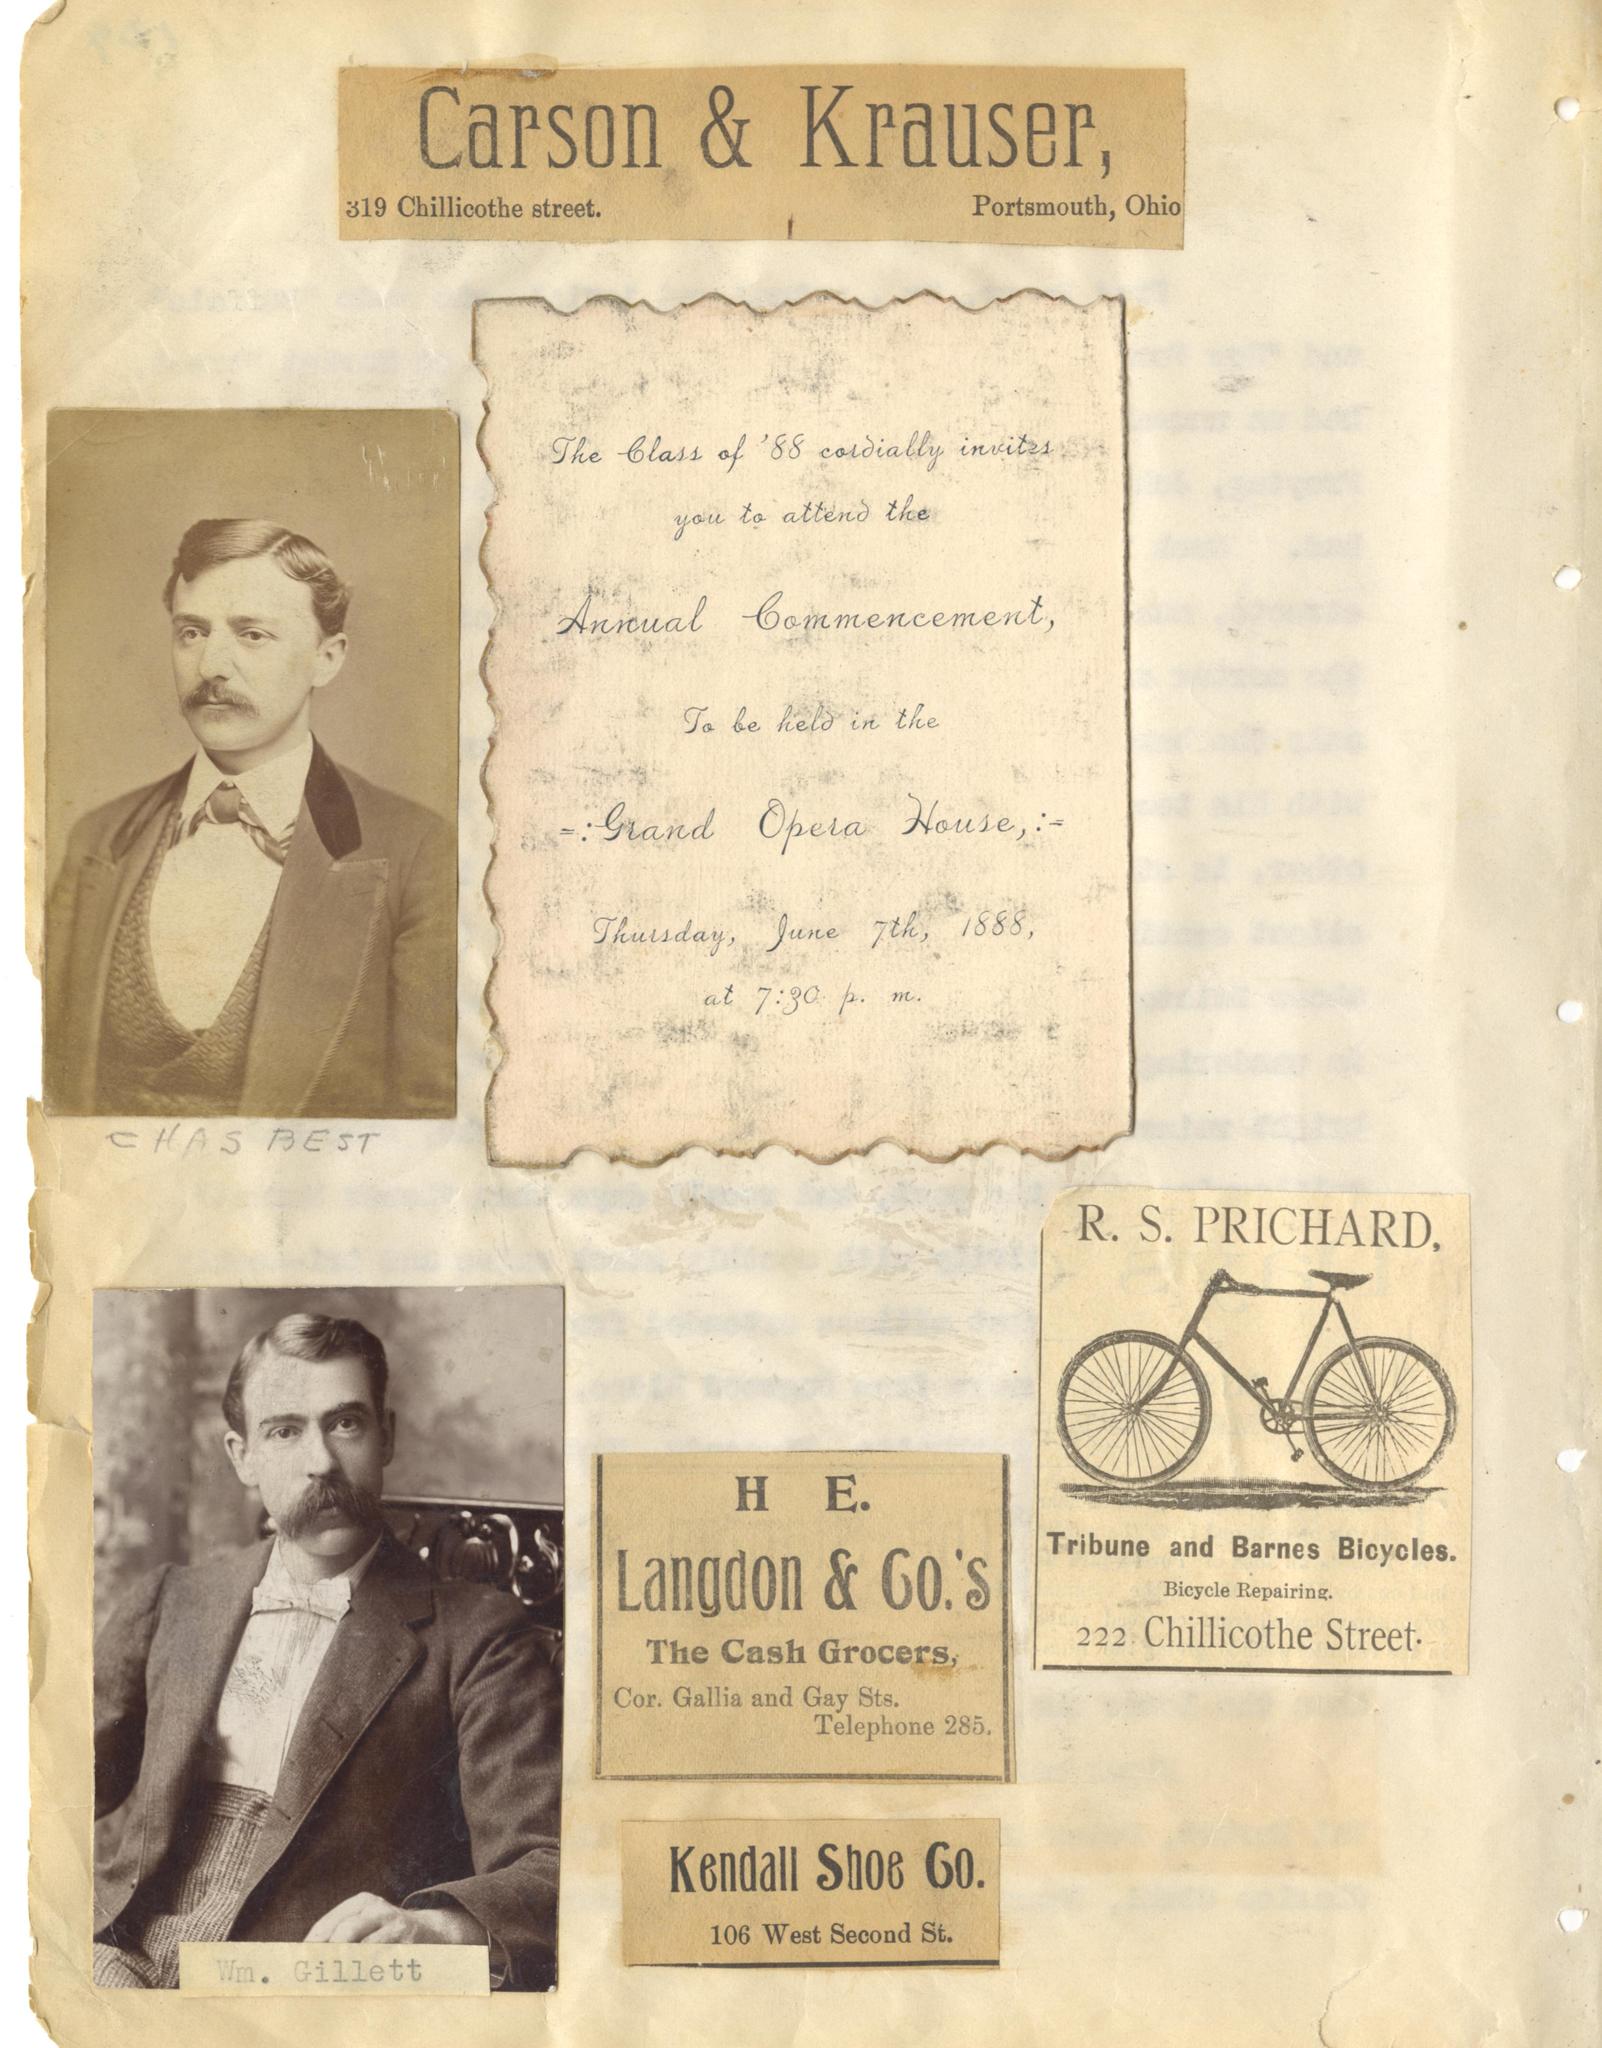 Carson & Krauser,
319 Chillicothe street. Portsmouth, Ohio
The Class of '88 cordially invites
you to attend the
Annual Commencement,
To be held in the
=:Grand Opera House,:=
Thursday, June 7th, 1888,
at 7:30 p. m.
CHAS BEST
R. S. PRICHARD,
Tribune and Barnes Bicycles.
Bicycle Repairing.
222 Chillicothe Street.
H E.
Langdon & Co.'s
The Cash Grocers,
Cor. Gallia and Gay Sts.
Telephone 285.
Kendall Shoe Co.
106 West Second St.
Wm. Gillett